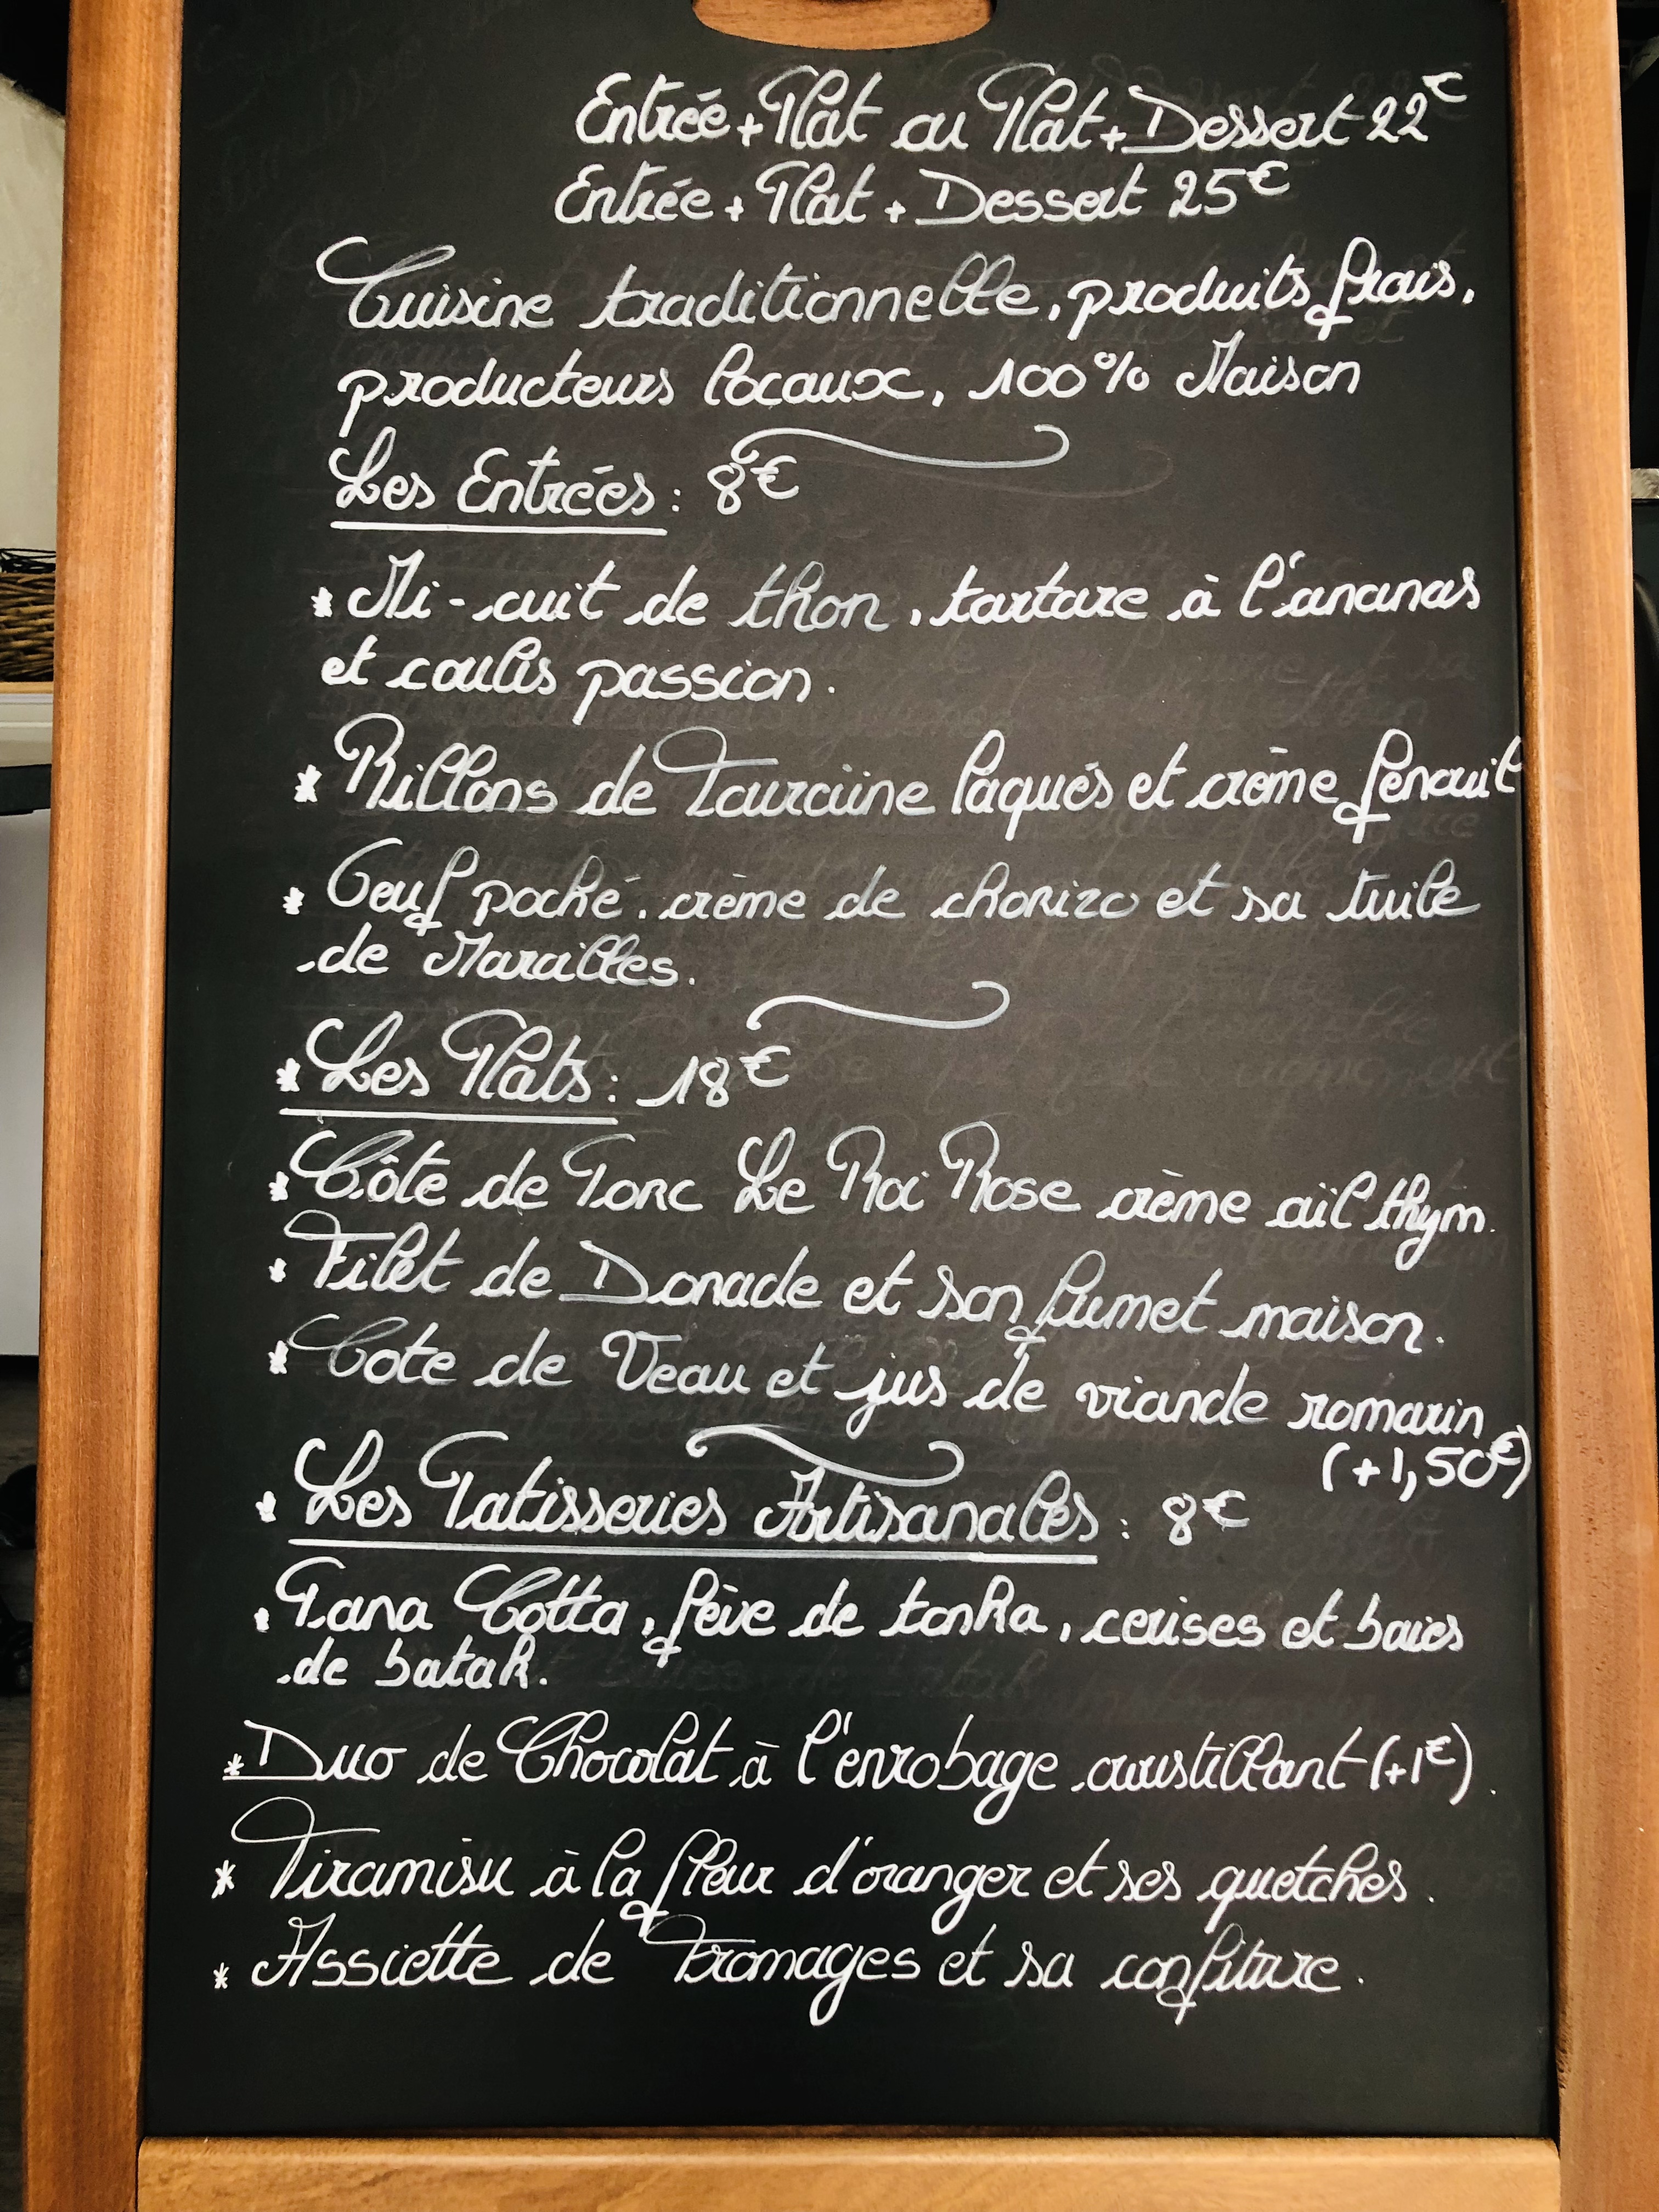 Entrée + Plat ou Plat + Dessert 22€
Entrée + Plat + Dessert 25€
Cuisine traditionnelle, produits frais,
producteurs locaux, 100% Maison
Les Entrées : 8€
* Mi-cuit de thon, tartare à l'ananas
et coulis passion.
* Rillons de Touraine laqués et crème fenouil
* Oeuf poché, crème de chorizo et sa tuile
de Maroilles.
* Les Plats : 18€
* Côte de Porc Le Roi Rose crème ail thym.
* Filet de Dorade et son fumet maison.
* Cote de Veau et jus de viande romarin
(+1,50€)
* Les Patisseries Artisanales : 8€
* Pana Cotta, fève de tonka, cerises et baies
de batak.
* Duo de Chocolat à l'enrobage croustillant (+1€).
* Tiramisu à la fleur d'oranger et ses quetches.
* Assiette de Fromages et sa confiture.